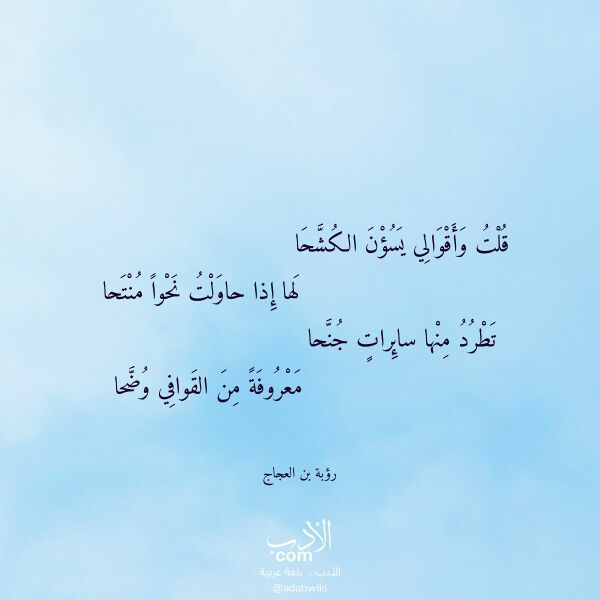 قُلْتُ وَأَقْوَالِي يَسُؤْنَ الكُشَّحَا
لَها إِذا حاوَلْتُ نَحْواً مُنْتَحا
تَطْرُدُ مِنْها سائِراتٍ جُنَّحا
مَعْرُوفَةً مِنَ القَوافِي وُضَّحا
رؤبة بن العجاج
الأدب
com
الأدب .. بلغة عربية
@adabwiki